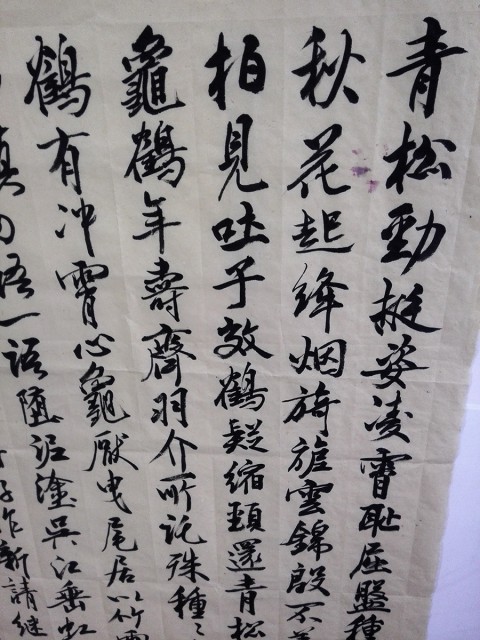 青松勁挺姿凌霄恥屈盤種
秋花起絳烟旖旎雲錦殷不
柏見吐子效鶴疑縮頸還青松
龜鶴年壽齊羽介所託殊種
鶴有冲霄心龜厭曳尾居以竹
勿語一語墮泥塗吳江垂虹
作新請继